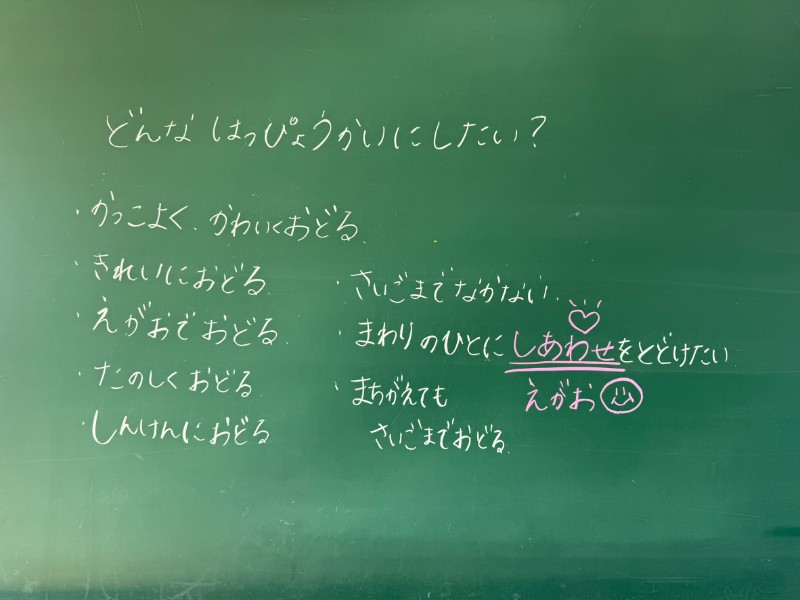 どんな はっぴょうかいにしたい?
・かっこよく、かわいくおどる。
・きれいにおどる。
・えがおでおどる。
・たのしくおどる。
・しんけんにおどる
・さいごまでなかない。
・まわりのひとにしあわせをとどけたい
えがお
・まちがえても
さいごまでおどる。